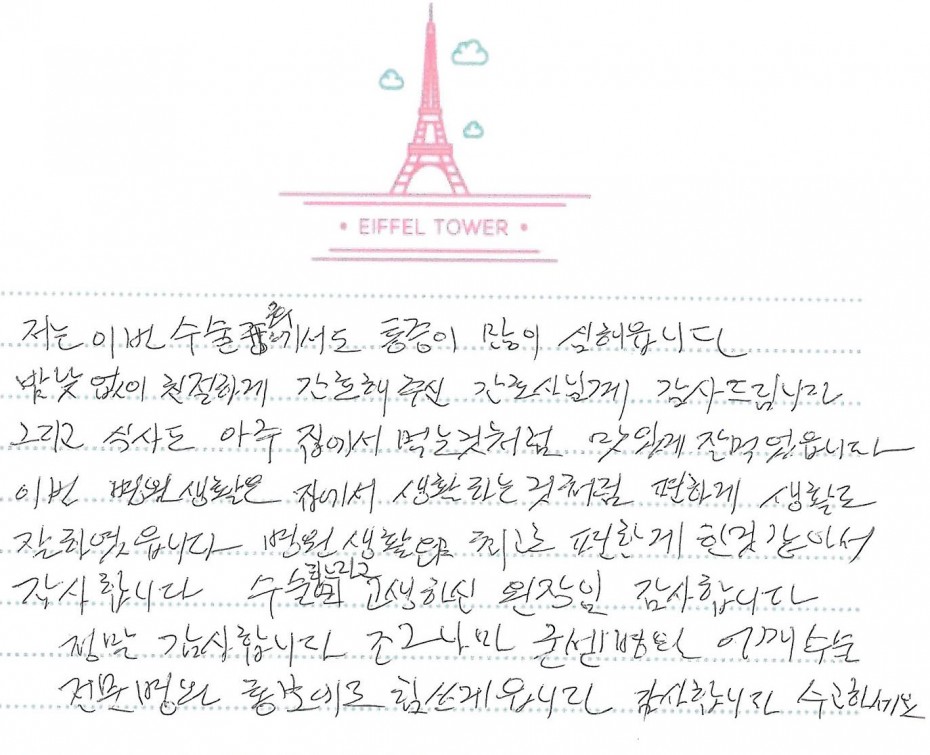 EIFFEL TOWER
저는 이번 수술 에서도 통증이 많이 심해웁니다
밤낮 없이 친절하게 간호해 주신 간호사님게 감사드림니다
그리고 식사도 아주 집에서 먹는것처럼 맛있게 잘먹었읍니다
이번 병원생활은 집에서 생활하는것처럼 편하게 생활도
잘하였읍니다 병원생활 최고로 편한게 한것같아서
감사합니다 수술 고생하신 감사합니다
정말 감사합니다 조그나마 굳센병원 어깨수술
전문병원 홍보에도 힘쓰게웁니다 감사합니다 수고하세요